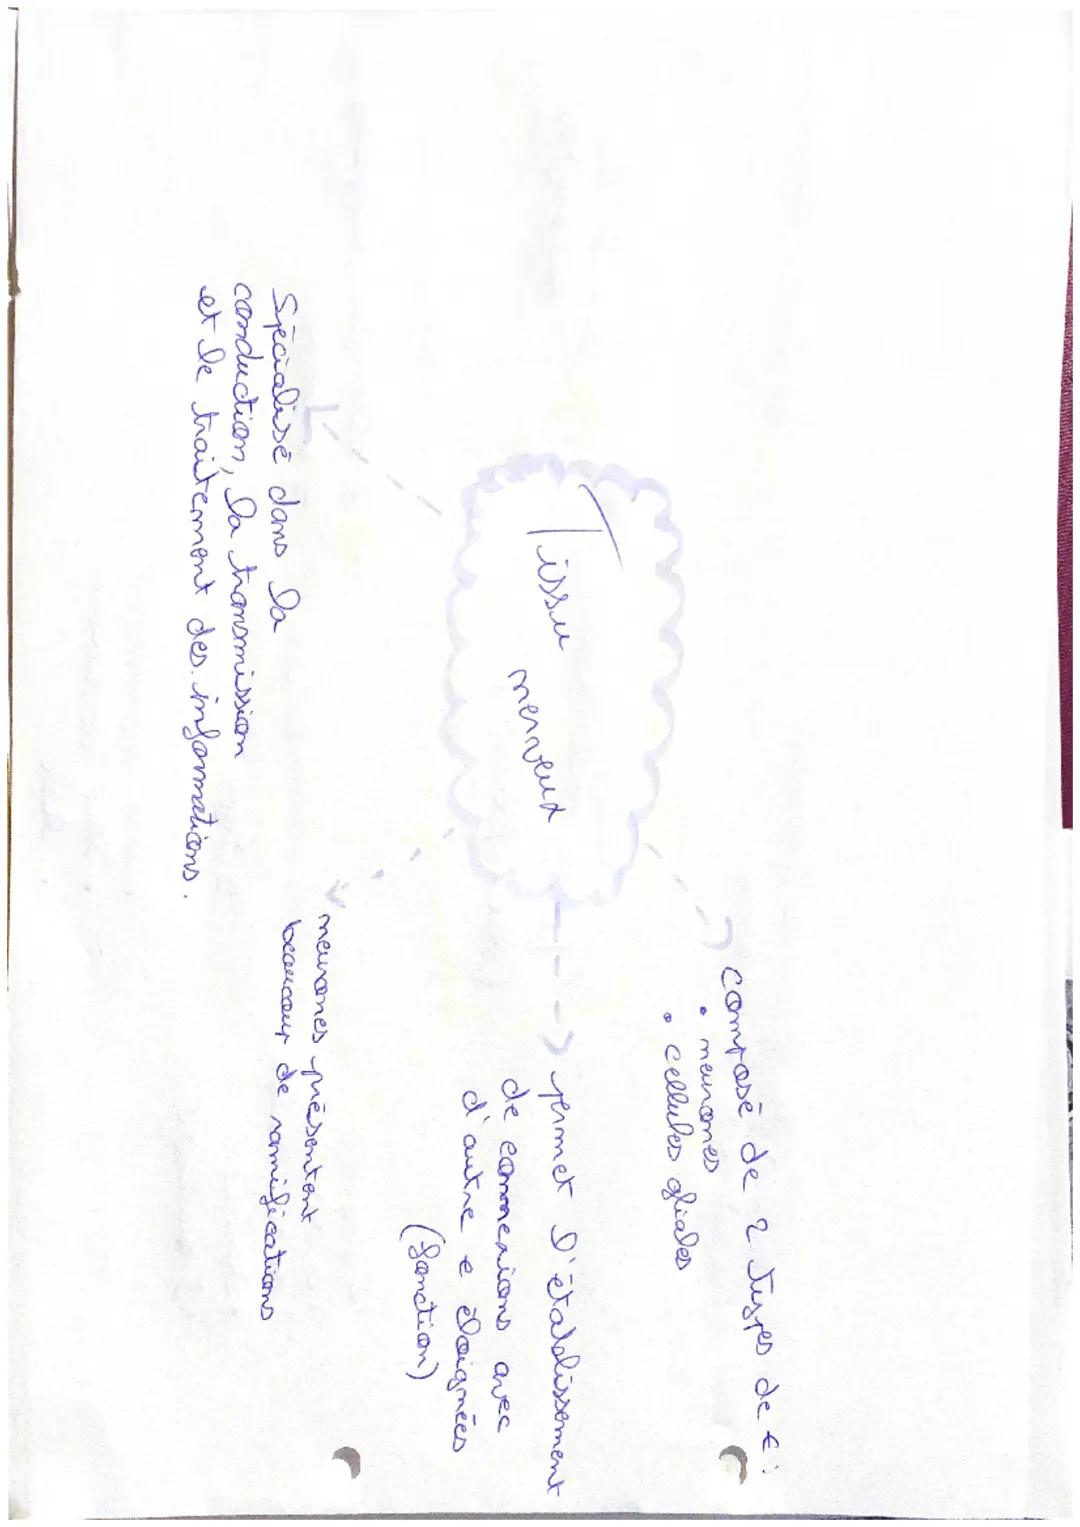 Tissu nerveux
composé de 2 types de € :
• neurones
• cellules gliales
permet l'établissement
de connexions avec
d'autre e éloignées
(fonction)
neurones présentent
beaucoup de ramifications
Spécialisé dans la
conduction, la transmission
et le traitement des informations.